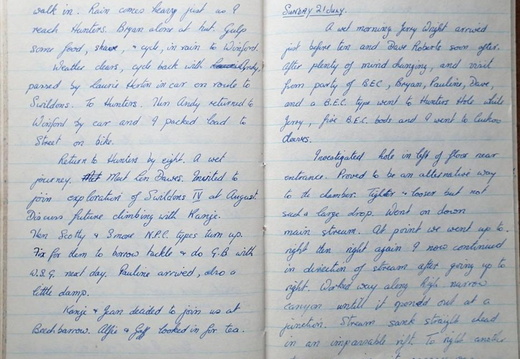 walk in. Rain comes heavy just as I
reach Hunters. Bryan alone at hut. Gulp
some food, shave, & cycle, in rain to Winsford.
Weather clears, cycle back with Andy,
passed by Laurie in car on route to
Swildons. To Hunters. Then Andy returned to
Winsford by car and I packed load to
Street on bike.
Return to Hunters by eight. A wet
journey. Met Len Dawes. Invited to
join exploration of Swildons IV at August.
Discuss future climbing with Kangi.
Then Scotty & 3 more N.P.C. types turn up.
Fix for them to borrow tackle & do G.B with
W.S.G. next day. Pauline arrived, also a
little damp.
Kangi & Jean decided to join us at
Beechbarrow. Alfie & Jeff looked in for tea.
SUNDAY 21st July.
A wet morning. Jerry Wright arrived
just before ten and Dave Roberts soon after.
After plenty of mind changing, and visit
from party of B.E.C., Bryan, Pauline, Dave,
and a B.E.C. type went to Hunters Hole while
Jerry, five B.E.C. bods and I went to Cuckoo
Cleeves.
Investigated hole in left of floor near
entrance. Proved to be an alternative way
to the chamber. Tighter & looser but not
such a large drop. Went on down
main stream. At point we went up to
right then right again I now continued
in direction of stream, after going up to
right. Worked way along high narrow
canyon until it opened out at a
junction. Stream sank straight ahead
in an impassable rift to right another